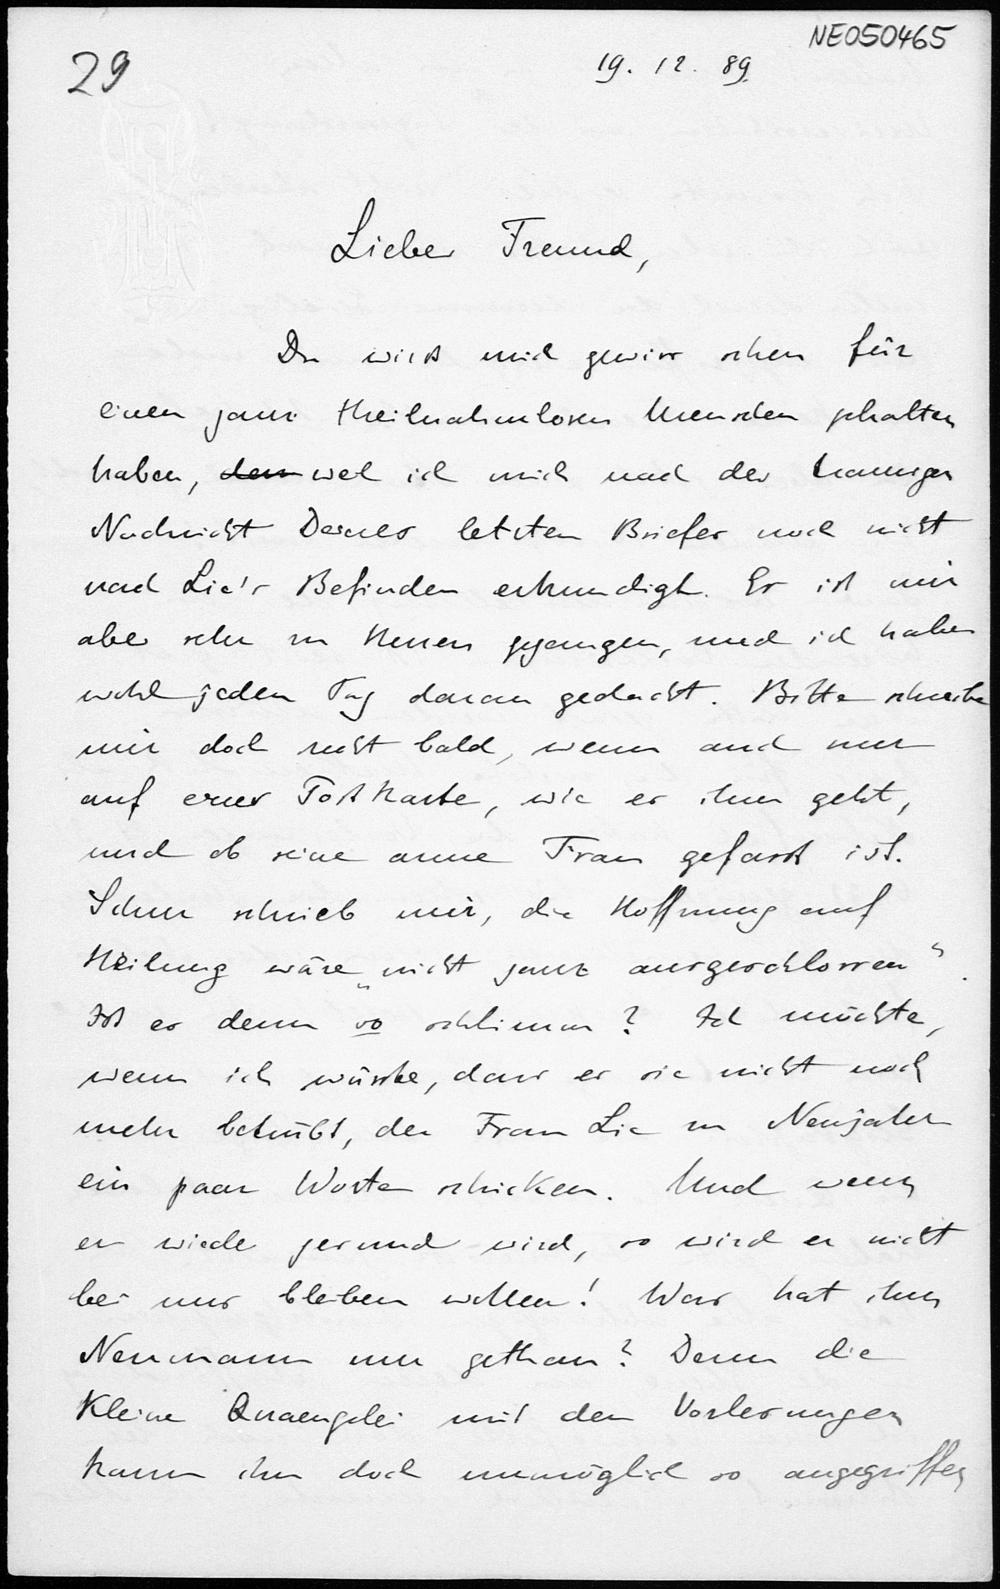 NE050465
29
19. 12. 89.
Lieber Freund,
Du wirst mich gewiss schon für
einen ganz theilnahmlosen Menschen gehalten
haben, denn weil ich mich nach der traurigen
Nachricht Deines letzten Briefes noch nicht
nach Lie's Befinden erkundigt. Es ist mir
aber sehr zu Herzen gegangen, und ich habe
wohl jeden Tag daran gedacht. Bitte schreibe
mir doch recht bald, wenn auch nur
auf einer Postkarte, wie es ihm geht,
und ob seine arme Frau gefasst ist.
Schur schrieb mir, die Hoffnung auf
Heilung wäre „nicht ganz ausgeschlossen“.
Ist es denn so schlimm? Ich möchte,
wenn ich wüsste, dass es sie nicht noch
mehr betrübt, der Frau Lie zu Neujahr
ein paar Worte schicken. Und wenn
er wieder gesund wird, so wird er nicht
bei uns bleiben wollen! Was hat ihm
Neumann nur gethan? Denn die
kleine Quaengelei mit den Vorlesungen
kann ihn doch unmöglich so angegriffen